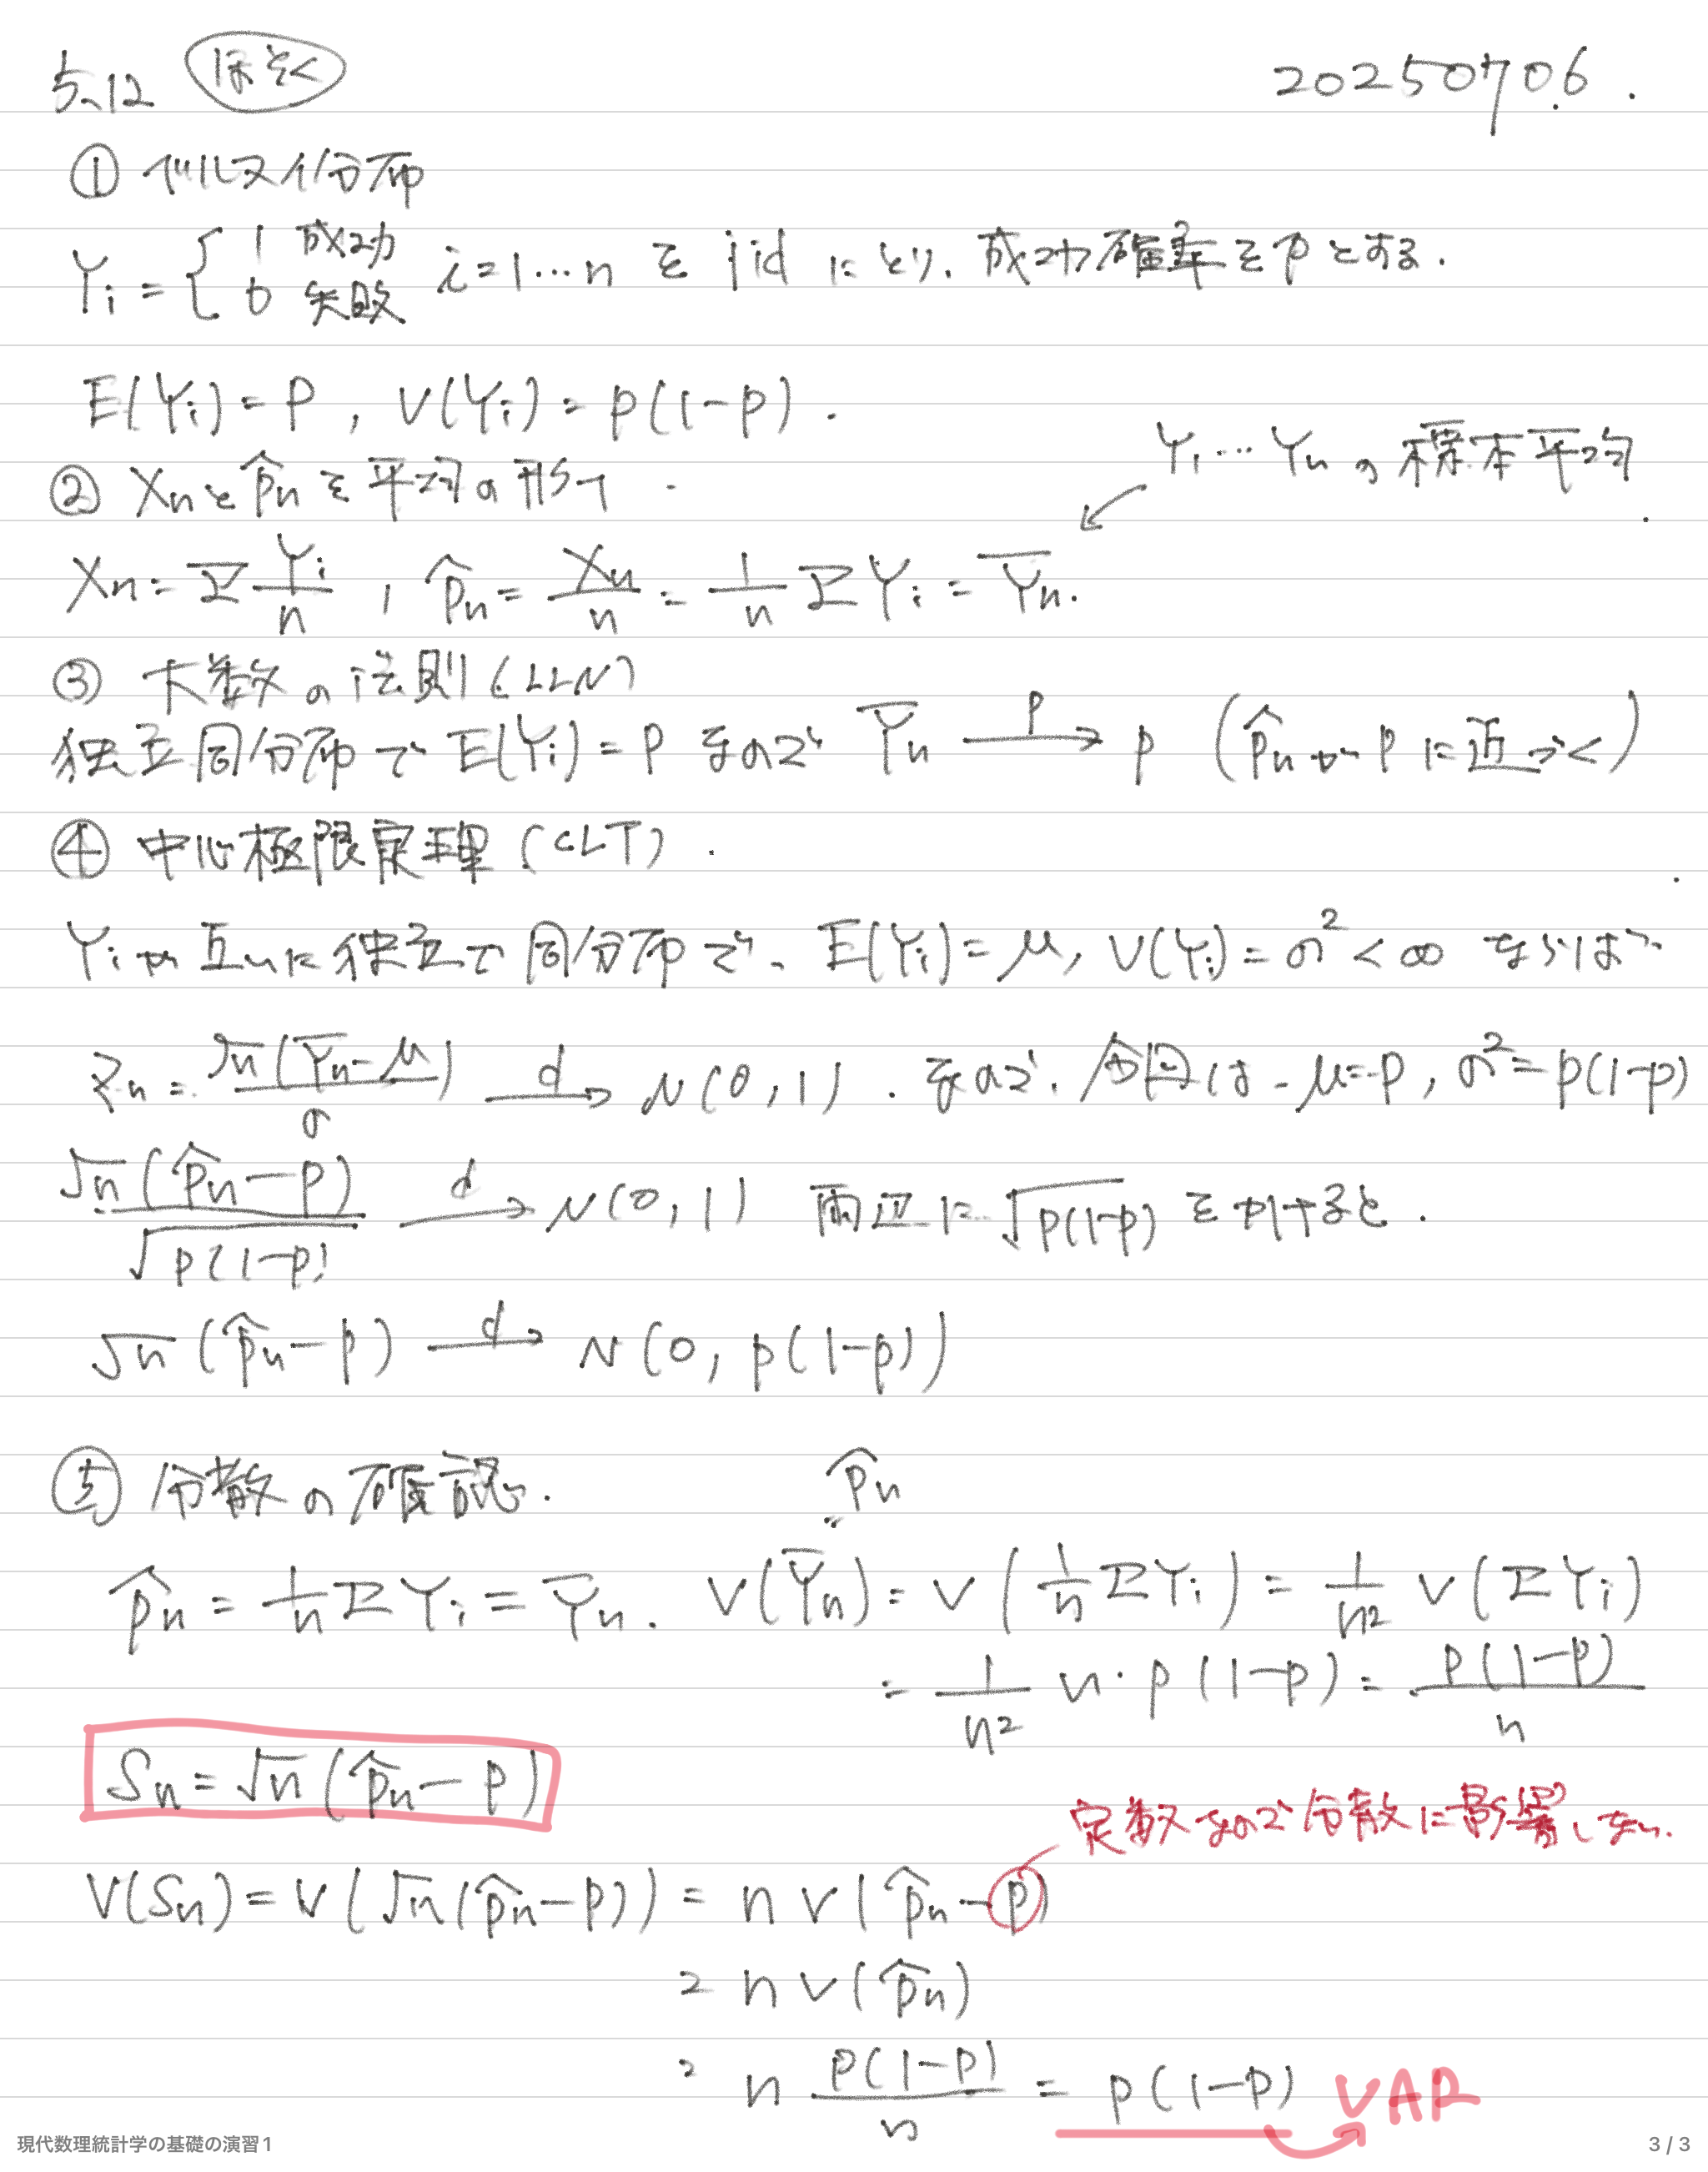 5.12 ほそく 20250706.
① ベルヌイ分布
Yi = { 1 成功 0 失敗 i=1…n を iid にとり、成功確率をpとする.
E(Yi) = P, V(Yi) = p(1-p).
Y1…Ynの標本平均.
② Xnとp̂nを平均の形へ
Xn = Σ Yi/n , p̂n = Xn/n = 1/n ΣYi = Ȳn.
③ 大数の法則 (LLN)
独立同分布で E(Yi) = P なので Ȳn →^p p (p̂nが P に近づく)
④ 中心極限定理 (CLT).
Yiが互いに独立で同分布で、E(Yi) = μ, V(Yi) = σ² < ∞ ならば
Zn = √n(Ȳn-μ)/σ →^d N(0, 1). なので、今回は、μ=p, σ²=p(1-p)
√n(p̂n-p)/√p(1-p) →^d N(0, 1) 両辺に √p(1-p) を掛けると.
√n(p̂n-p) →^d N(0, p(1-p))
⑤ 分散の確認.
p̂n
p̂n = 1/n ΣYi = Ȳn. V(Ȳn) = V(1/n ΣYi) = 1/n² V(ΣYi)
= 1/n² n・p(1-p) = p(1-p)/n
Sn = √n(p̂n-p)
定数なので分散に影響しない.
V(Sn) = V(√n(p̂n-p)) = n V(p̂n-p)
= n V(p̂n)
= n p(1-p)/n = p(1-p) VAR
現代数理統計学の基礎の演習1 3 / 3